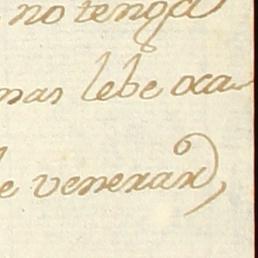 no tenga
mas lebe oca
e veneran,